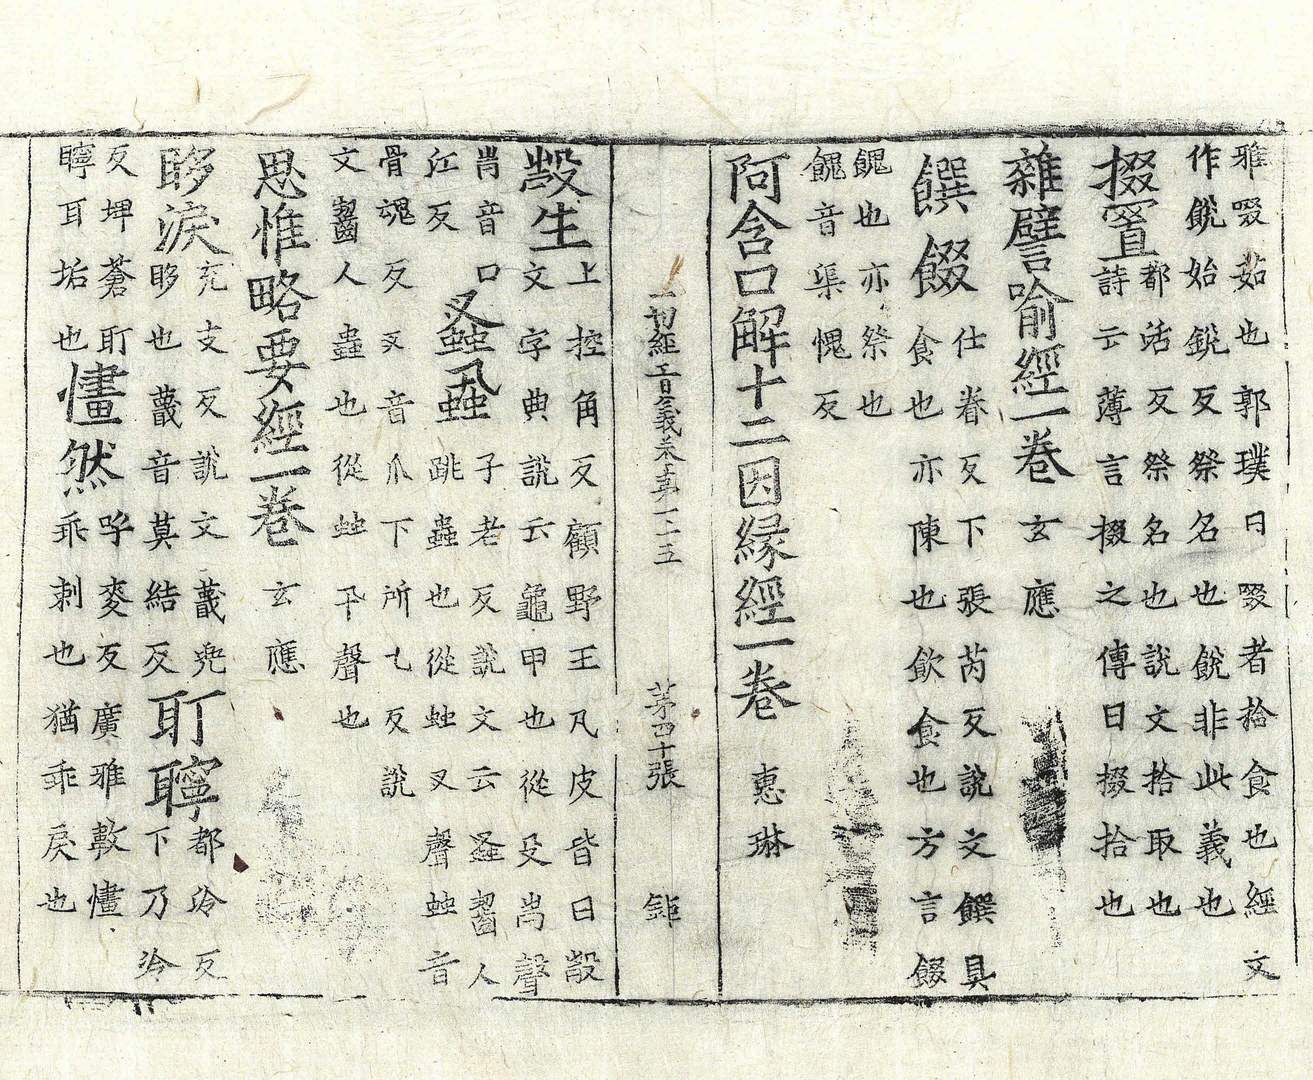 雅啜茹也郭璞曰啜者拾食也經文
作餟始銳反祭名也餟非此義也
掇置都活反祭名也說文拾取也
詩云薄言掇之傳曰掇拾也
雜譬喻經一卷玄應
饌餟仕眷反下張芮反說文饌具
食也亦陳也飲食也方言餟
餽也亦祭也
餽音渠愧反
阿含口解十二因緣經一卷惠琳
一切經音義卷第一二五 茅四十張 鉅
㲉生上控角反顧野王凡皮皆曰㲉
文字典說云龜甲也從殳𡵂聲
𡵂音口
蚤蝨子老反說文云蚤齧人
江反 跳蟲也從䖵叉聲䖵音
骨魂反叉音爪下所乙反說
文齧人蟲也從䖵卂聲也
思惟略要經一卷玄應
眵淚充支反說文蔑兜
眵也蔑音莫結反
耵聹都冷反
下乃冷
反埤蒼耵
聹耳垢也
㦎然呼麥反廣雅敷㦎
乖刺也猶乖戾也